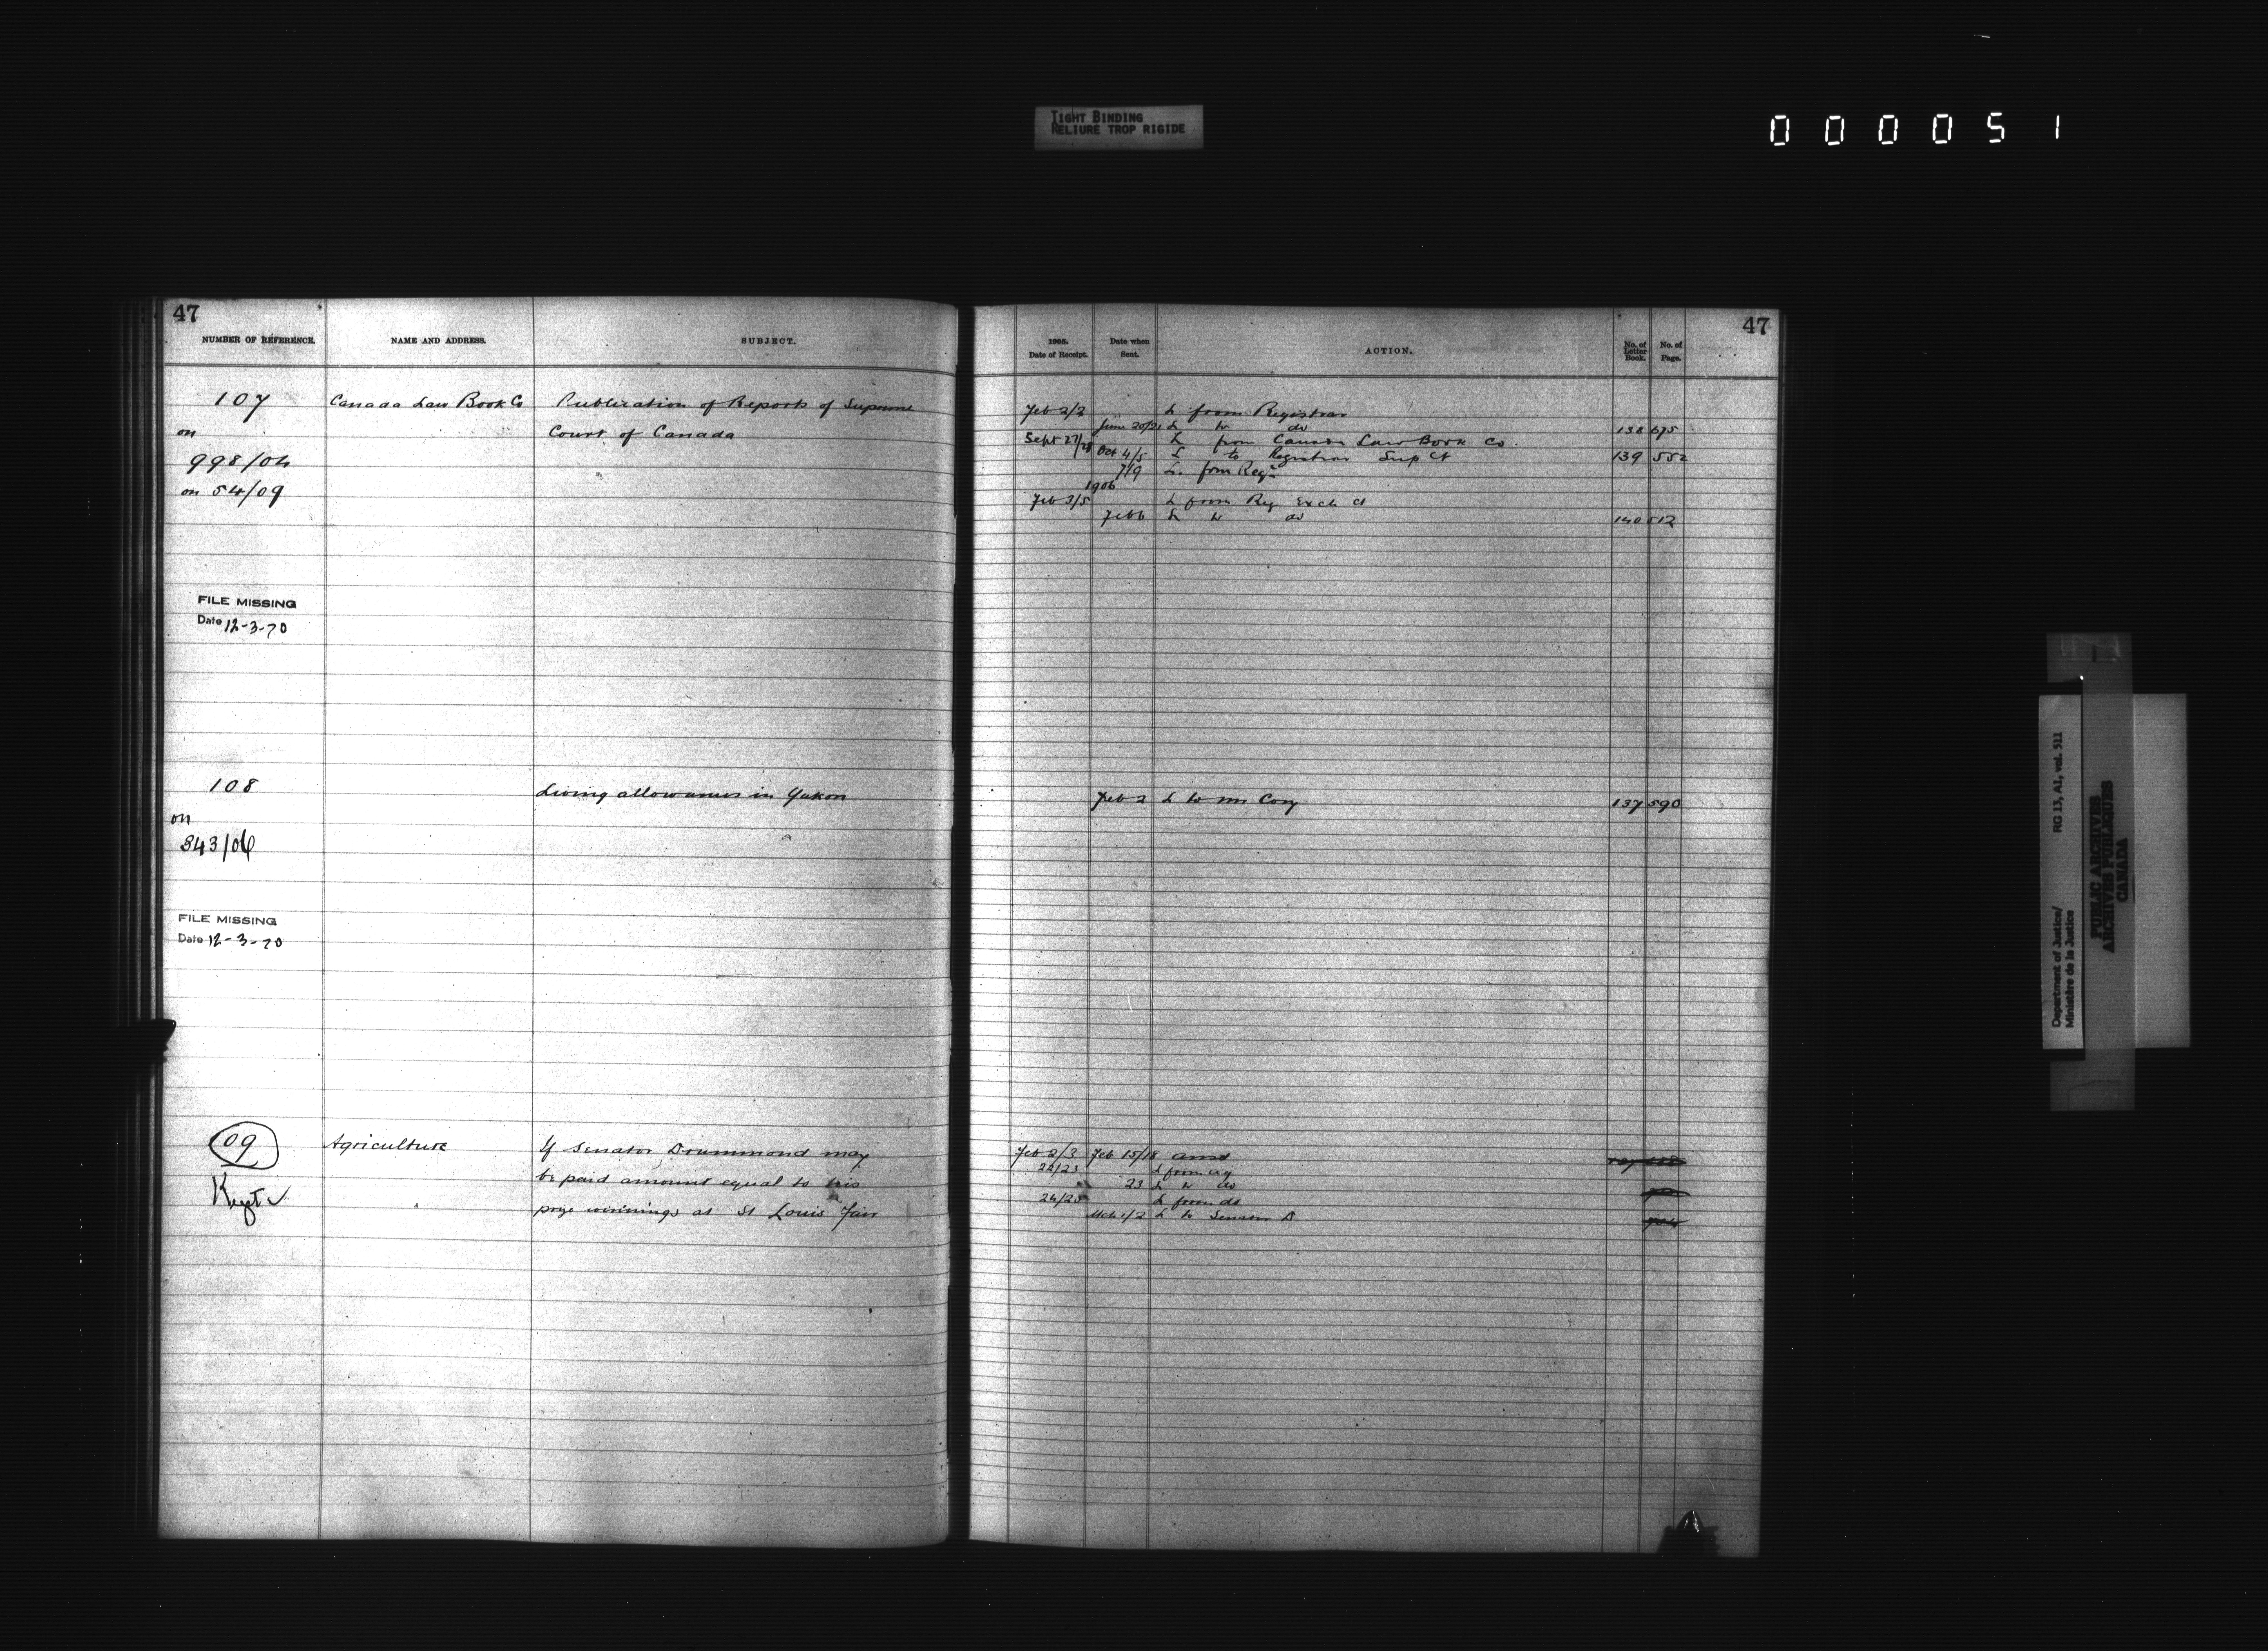 TIGHT BINDING
RELIURE TROP RIGIDE
000051
47
NUMBER OF REFERENCE. NAME AND ADDRESS. SUBJECT.
107 Canada Law Book Co Publication of Reports of Supreme
on Court of Canada
998/04
on 54/09
FILE MISSING
Date 12-3-70
108 Living allowances in Yukon
on
343/06
FILE MISSING
Date 12-3-70
109 Agriculture If Senator Drummond may
be paid amount equal to his
Kept prize winnings at St Louis Fair
47
1905. Date of Receipt. Date when Sent. ACTION. No. of Letter Book. No. of Page.
Feb 2/3 L from Registrar
June 20/21 L to do 138 675
Sept 27/28 L from Canada Law Book Co.
Oct 4/5 L to Registrar Sup Ct 139 552
7/9 L. from Regr
1906
Feb 3/5 L from Reg Exch Ct
Feb 6 L to do 140 512
Feb 2 L to Mr Cory 137 590
Feb 2/3 Feb 15/18 ansd
22/23 L from
23 L to do
24/25 L from do
Mch 1/2 L to Senator D
Department of Justice/ RG 13, A1, vol. 511
Ministère de la Justice
PUBLIC ARCHIVES
ARCHIVES PUBLIQUES
CANADA